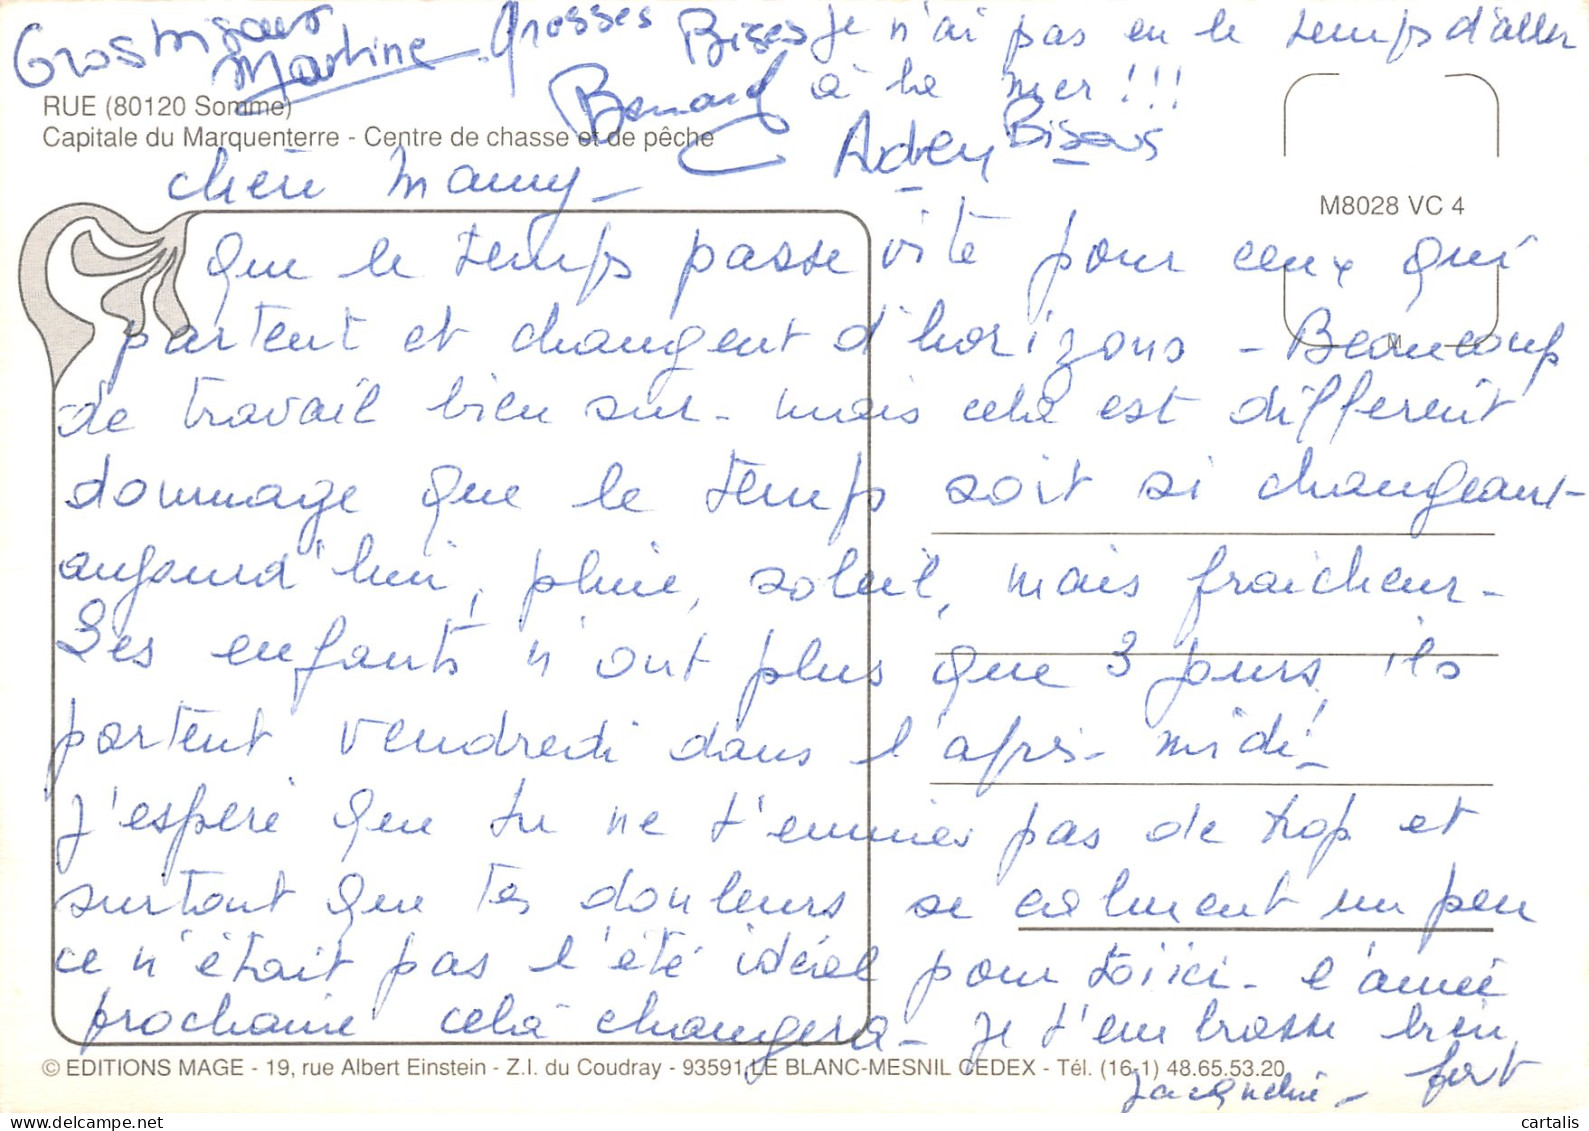 Gros bisous Grosses Bises Je n'ai pas eu le temps d'aller
Martine Bernard à la mer !!!
RUE (80120 Somme)
Capitale du Marquenterre - Centre de chasse et de pêche
Bisous
chère Mamy -
M8028 VC 4
Que le temps passe vite pour ceux qui
partent et changent d'horizons - Beaucoup
M
de travail bien sur - mais celà est different
dommage que le temps soit si changeant -
aujourd'hui, pluie, soleil, mais fraicheur -
Les enfants n'ont plus que 3 jours, ils
partent vendredi dans l'après-midi -
J'espère que tu ne t'ennuies pas de trop et
surtout que tes douleurs se calment un peu
ce n'était pas l'été idéal pour toi ici - l'année
prochaine celà changera - je t'embrasse bien
fort
© EDITIONS MAGE - 19, rue Albert Einstein - Z.I. du Coudray - 93591 LE BLANC-MESNIL CEDEX - Tél. (16-1) 48.65.53.20
Jacqueline -
cartalis